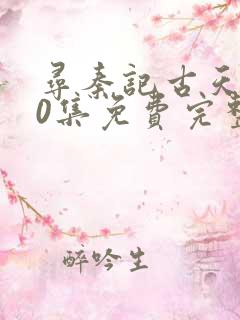 尋秦記古天
0集免費完整
醉吟生